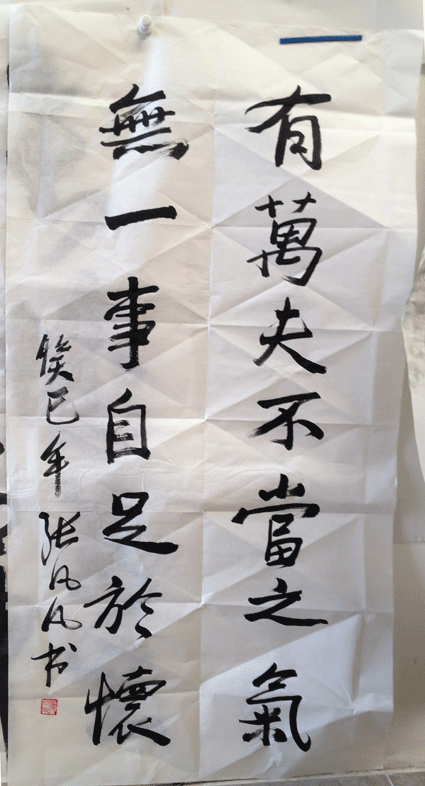 有萬夫不當之氣
無一事自足於懷
癸巳年 張凡凡书